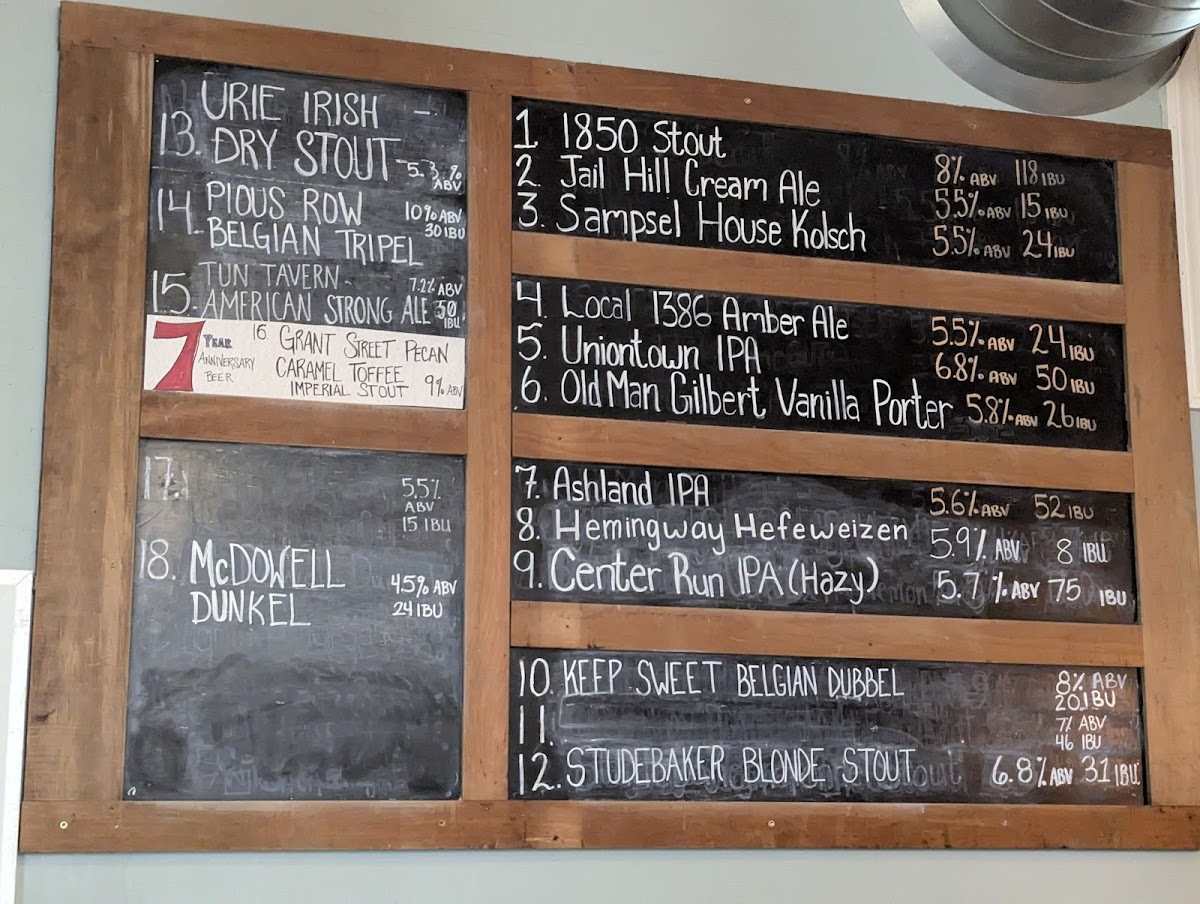 URIE IRISH —
13. DRY STOUT – 5.3% ABV
14. PIOUS ROW 10% ABV
BELGIAN TRIPEL 30 IBU
15. TUN TAVERN - 7.2% ABV
AMERICAN STRONG ALE 50 IBU
7 YEAR ANNIVERSARY BEER
16. GRANT STREET PECAN
CARAMEL TOFFEE
IMPERIAL STOUT 9% ABV
17. 5.5% ABV
15 IBU
18. McDOWELL 4.5% ABV
DUNKEL 24 IBU
1. 1850 Stout 8% ABV 118 IBU
2. Jail Hill Cream Ale 5.5% ABV 15 IBU
3. Sampsel House Kolsch 5.5% ABV 24 IBU
4. Local 1386 Amber Ale 5.5% ABV 24 IBU
5. Uniontown IPA 6.8% ABV 50 IBU
6. Old Man Gilbert Vanilla Porter 5.8% ABV 26 IBU
7. Ashland IPA 5.6% ABV 52 IBU
8. Hemingway Hefeweizen 5.9% ABV 8 IBU
9. Center Run IPA (Hazy) 5.7% ABV 75 IBU
10. KEEP SWEET BELGIAN DUBBEL 8% ABV
20 IBU
11. 7% ABV
46 IBU
12. STUDEBAKER BLONDE STOUT 6.8% ABV 31 IBU